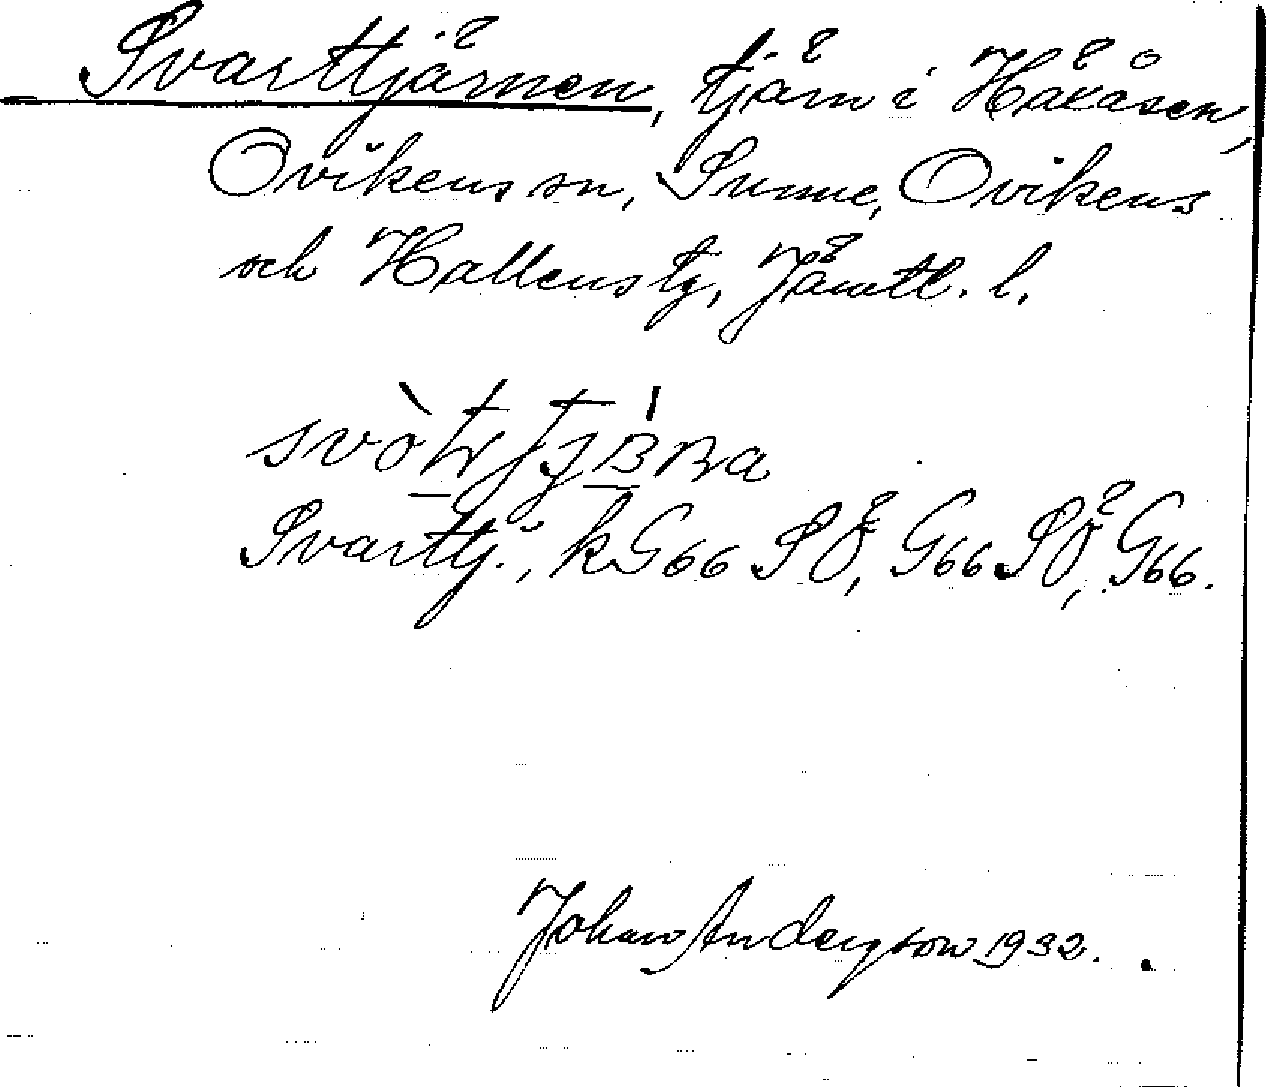 Svarttjärnen, tjärn i Häkåsen,
Ovikens sn, Sunne, Ovikens
och Hallens tg, Jämtl. l.
Svarttj., k G66 SÖ, G66 SÖ, G66.
Johan Anderson 1932.